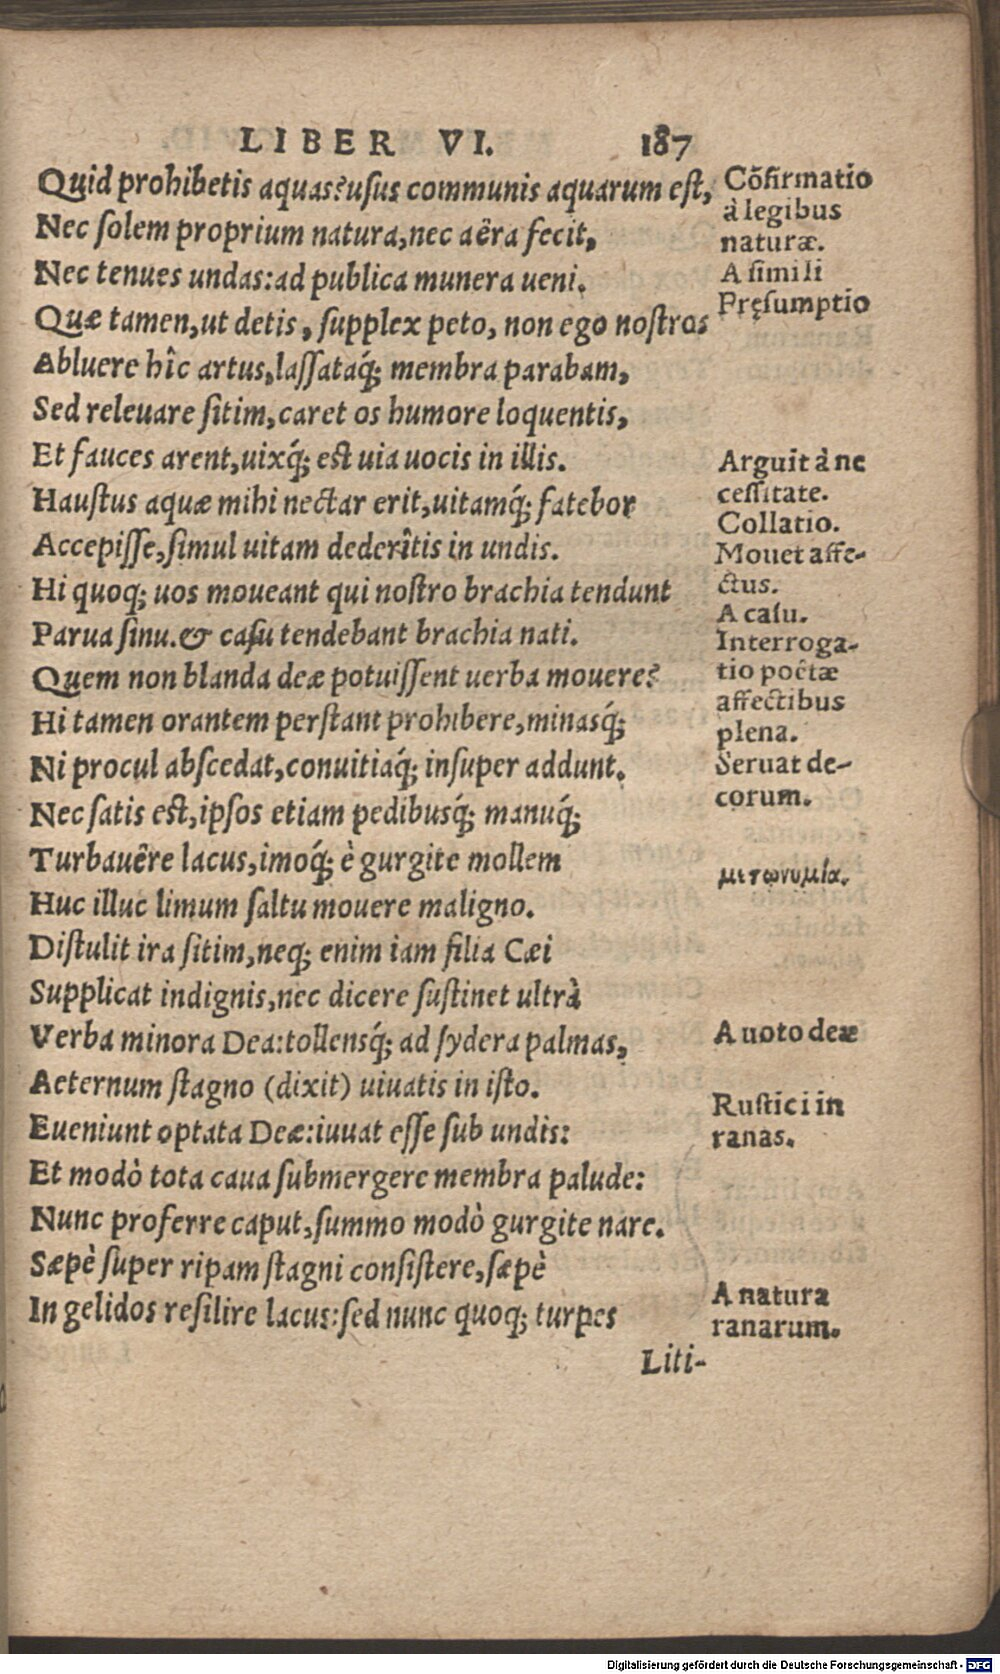 LIBER VI. 187
Quid prohibetis aquas? usus communis aquarum est,
Nec solem proprium natura, nec aêra fecit,
Nec tenues undas: ad publica munera ueni.
Quæ tamen, ut detis, supplex peto, non ego nostros
Abluere hîc artus, lassataq́; membra parabam,
Sed releuare sitim, caret os humore loquentis,
Et fauces arent, uixq́; est uia uocis in illis.
Haustus aquæ mihi nectar erit, uitamq́; fatebor
Accepisse, simul uitam dederîtis in undis.
Hi quoq; uos moueant qui nostro brachia tendunt
Parua sinu. & casu tendebant brachia nati.
Quem non blanda deæ potuissent uerba mouere?
Hi tamen orantem perstant prohibere, minasq́;
Ni procul abscedat, conuitiaq́; insuper addunt.
Nec satis est, ipsos etiam pedibusq́; manuq́;
Turbauêre lacus, imoq́; è gurgite mollem
Huc illuc limum saltu mouere maligno.
Distulit ira sitim, neq; enim iam filia Cæi
Supplicat indignis, nec dicere sustinet ultrà
Verba minora Dea: tollensq́; ad sydera palmas,
Aeternum stagno (dixit) uiuatis in isto.
Eueniunt optata Deæ: iuuat esse sub undis:
Et modò tota caua submergere membra palude:
Nunc proferre caput, summo modò gurgite nare.
Sæpè super ripam stagni consistere, sæpè
In gelidos resilire lacus: sed nunc quoq; turpes
Liti-
Cõfirmatio
à legibus
naturæ.
A simili
Pręsumptio
Arguit à ne
cessitate.
Collatio.
Mouet affe-
ctus.
A casu.
Interroga-
tio poêtæ
affectibus
plena.
Seruat de-
corum.
μετωνυμία.
A uoto deæ
Rustici in
ranas.
A natura
ranarum.
Digitalisierung gefördert durch die Deutsche Forschungsgemeinschaft - DFG